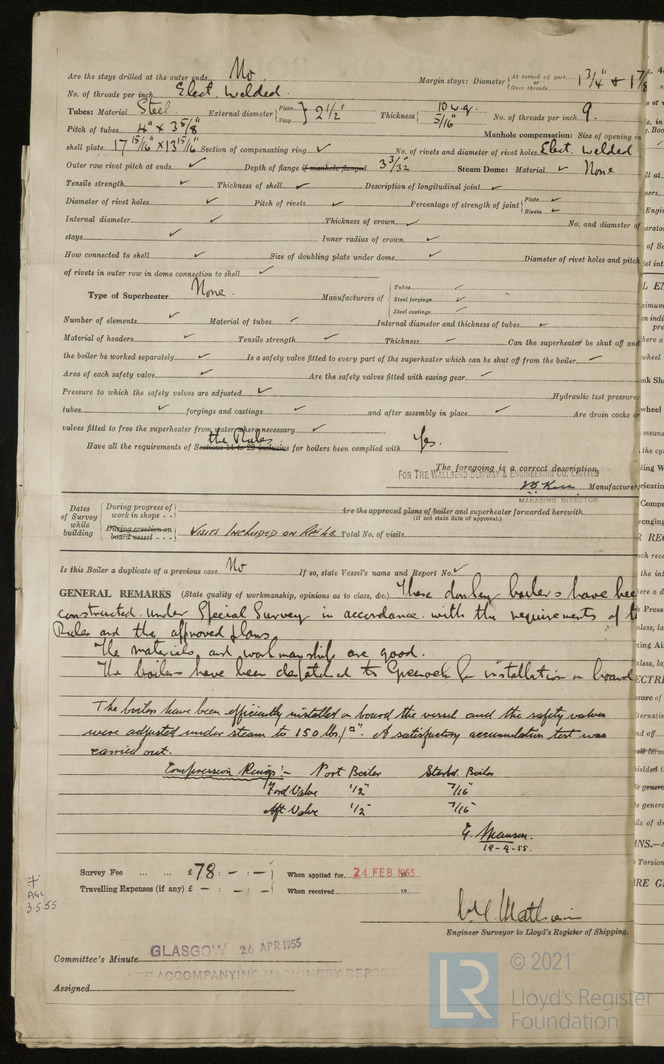 Are the stays drilled at the outer ends No Margin stays: Diameter { At turned off part, or Over threads 1 3/4" & 1 7/8
No. of threads per inch Elect. Welded.
Tubes: Material Steel External diameter { Plain Stay } 2 1/2" Thickness 10 w.g. 5/16" No. of threads per inch 9.
Pitch of tubes 4" x 3 5/8" Manhole compensation: Size of opening in
shell plate 17 15/16" x 13 15/16" Section of compensating ring ✓ No. of rivets and diameter of rivet holes Elect. Welded
Outer row rivet pitch at ends ✓ Depth of flange if manhole flanged 3 3/32" Steam Dome: Material ✓ None
Tensile strength ✓ Thickness of shell ✓ Description of longitudinal joint ✓
Diameter of rivet holes ✓ Pitch of rivets ✓ Percentage of strength of joint { Plate ✓ Rivets ✓
Internal diameter ✓ Thickness of crown ✓ No. and diameter of
stays ✓ Inner radius of crown ✓
How connected to shell ✓ Size of doubling plate under dome ✓ Diameter of rivet holes and pitch
of rivets in outer row in dome connection to shell ✓
Type of Superheater None. Manufacturers of { Tubes ✓ Steel forgings ✓ Steel castings ✓
Number of elements ✓ Material of tubes ✓ Internal diameter and thickness of tubes ✓
Material of headers ✓ Tensile strength ✓ Thickness ✓ Can the superheater be shut off and
the boiler be worked separately ✓ Is a safety valve fitted to every part of the superheater which can be shut off from the boiler ✓
Area of each safety valve ✓ Are the safety valves fitted with easing gear ✓
Pressure to which the safety valves are adjusted ✓ Hydraulic test pressure:
tubes ✓ forgings and castings ✓ and after assembly in place ✓ Are drain cocks or
valves fitted to free the superheater from water where necessary ✓
the Rules
Have all the requirements of Sections 14 to 22 inclusive for boilers been complied with Yes.
The foregoing is a correct description,
FOR THE WALLSEND SLIPWAY & ENGINEERING CO. LIMITED
Manufacturer.
MANAGING DIRECTOR
Dates of Survey while building { During progress of work in shops - - During erection on board vessel - - - } VISITS INCLUDED ON
Are the approved plans of boiler and superheater forwarded herewith
(If not state date of approval.)
Total No. of visits
Is this Boiler a duplicate of a previous case No If so, state Vessel's name and Report No. ✓
GENERAL REMARKS (State quality of workmanship, opinions as to class, &c.) These donkey boilers have bee
constructed under Special Survey in accordance with the requirements of t
Rules and the approved plans.
The materials and workmanship are good.
The boilers have been despatched to Greenock for installation on board
The boilers have been efficiently installed on board the vessel and the safety valves
were adjusted under steam to 150 lbs/□". A satisfactory accumulation test was
carried out.
Compression Rings:- Port Boiler Starbd. Boiler
Ford Valve 1/2" 7/16"
Aft Valve 1/2" 7/16"
19-4-55.
Survey Fee ... ... £78 : - : - When applied for, 24 FEB 1955 19
Travelling Expenses (if any) £ - : - : - When received 19
3.5.55
Engineer Surveyor to Lloyd's Register of Shipping.
Committee's Minute GLASGOW 26 APR 1955
SEE ACCOMPANYING MACHINERY REPORT
Assigned
LR
© 2021
Lloyd's Register
Foundation